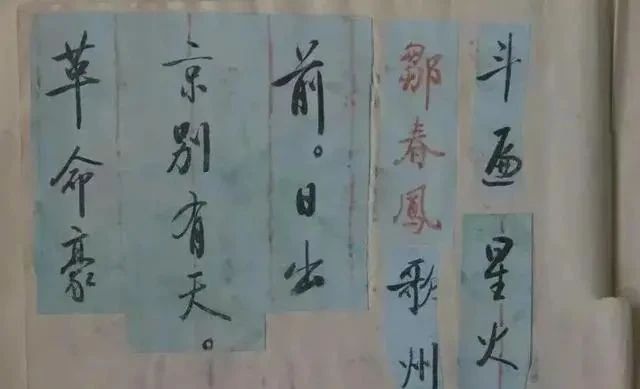 斗遍星火
鄒春鳳歌州
前。日出
京别有天。
革命豪